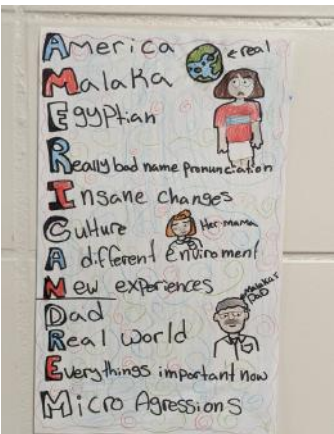 America
← real
Malaka
Egyptian
Really bad name pronunciation
Insane changes
Culture
Her mama
A different Enviroment
New experiences
Malaka's
DaD
Dad
Real World
Everythings important now
Micro Agressions